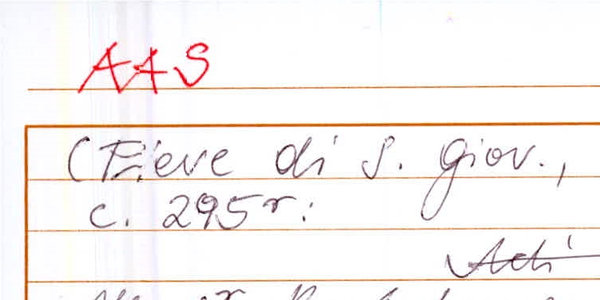 AAS
(Pieve di S. Giov.,
c. 295r:
Adi